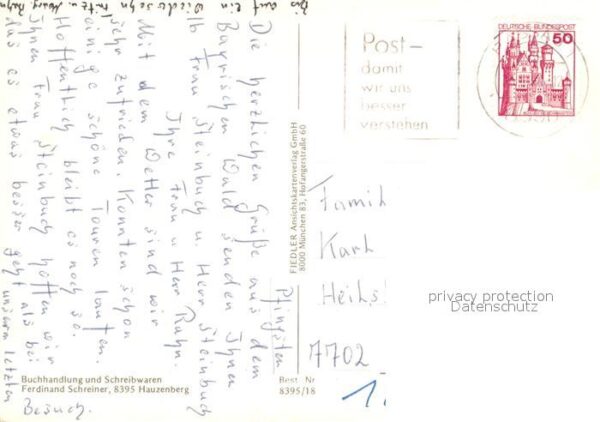 Pfingsten
Die herzlichen Grüße aus dem
Bayrischen Wald senden Ihnen
lb Frau Steinbuch u. Herr Steinbuch
Ihre Frau u Herr Rahn.
Mit dem Wetter sind wir
sehr zufrieden. Konnten schon
einige schöne Touren laufen.
Hoffentlich bleibt es noch so.
Ihnen Frau Steinbuch hoffen wir
das es etwas besser geht als bei
unserm letzten
Besuch.
auf ein Wiedersehn
Rahn
Buchhandlung und Schreibwaren
Ferdinand Schreiner, 8395 Hauzenberg
Best. Nr
8395/18
FIEDLER Ansichtskartenverlag GmbH
8000 München 83, Hofangerstraße 60
Post-
damit
wir uns
besser
verstehen
DEUTSCHE BUNDESPOST
50
Famil
Karl
7702
1.
privacy protection
Datenschutz